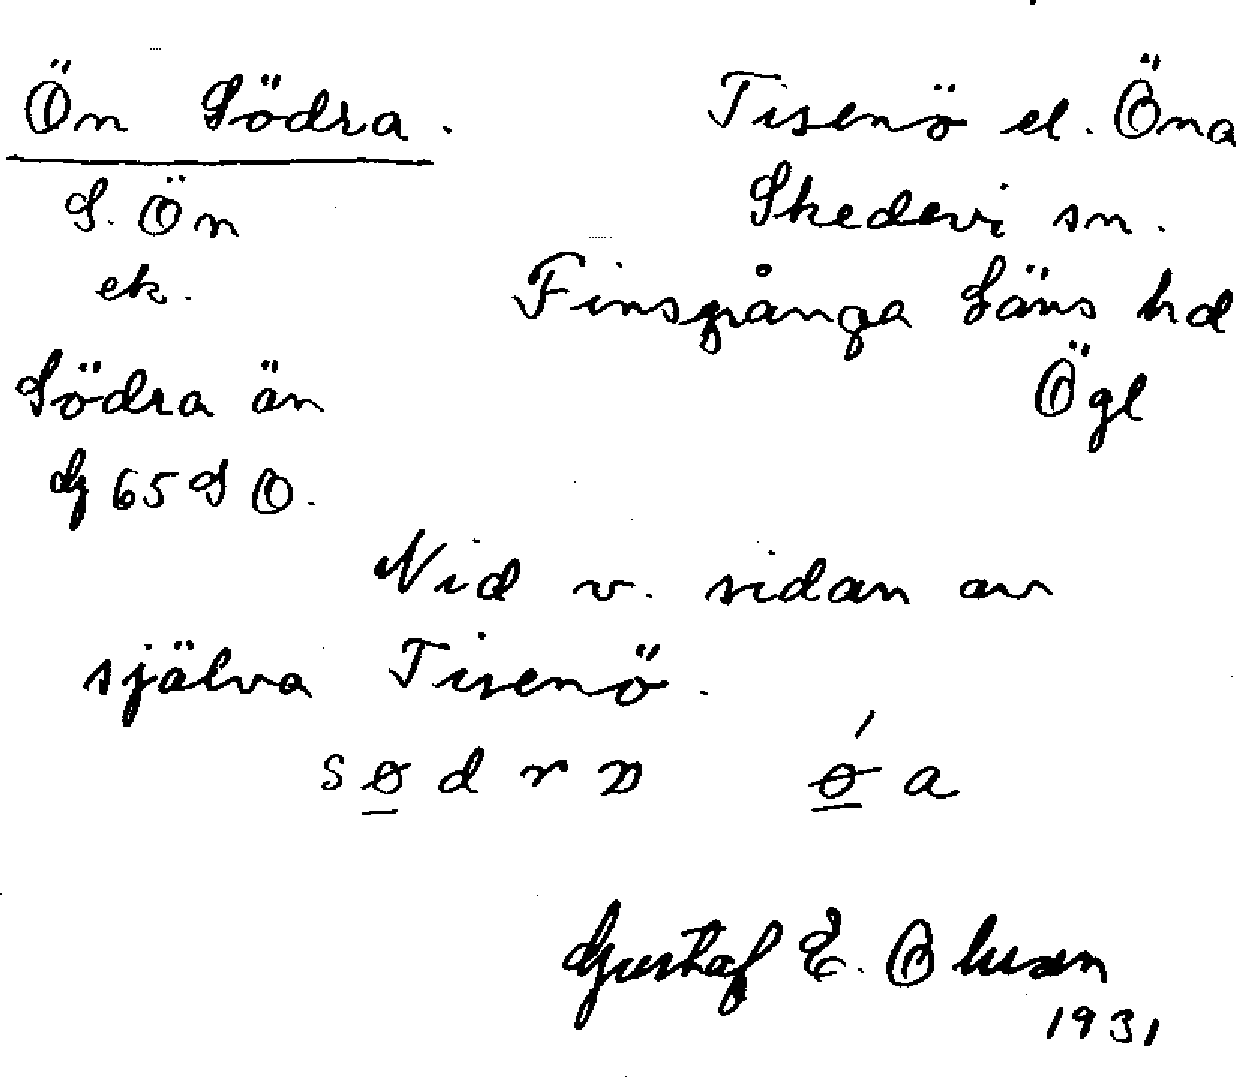 Ön Södra.
S. Ön
ek.
Södra än
G 65 S O.
Tisenö el. Öna
Skedevi sn.
Finspånga Läns hd
Ögl
Nid v. sidan av
själva Tisenö.
södra
Gustaf E. Olsson
1931